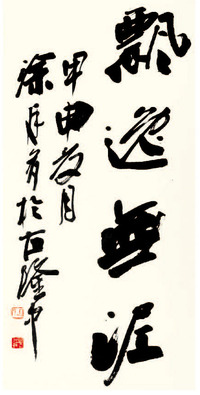 飄逸無涯
甲申夏月
於古隆中